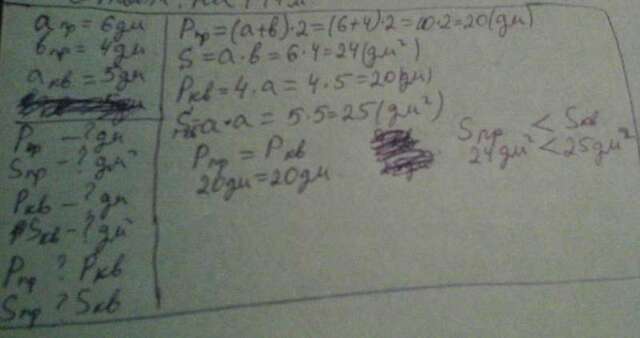 a пр = 6дм
b пр = 4дм
a кв = 5дм
P пр - ? дм
S пр - ? дм²
P кв - ? дм
S кв - ? дм²
P пр ? P кв
S пр ? S кв
P пр = (a+b)·2 = (6+4)·2 = 10·2 = 20(дм)
S = a·b = 6·4 = 24(дм²)
P кв = 4·a = 4·5 = 20(дм)
S = a·a = 5·5 = 25(дм²)
P пр = P кв
20дм = 20дм
S пр < S кв
24дм² < 25дм²